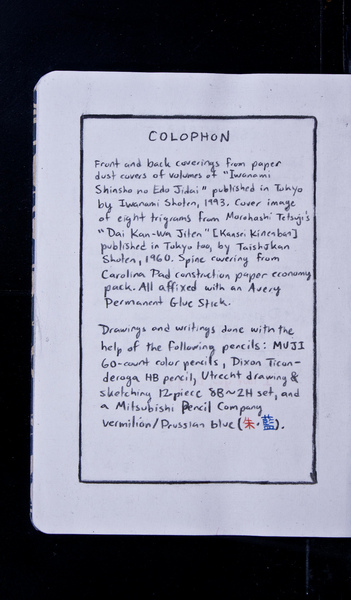 COLOPHON
Front and back coverings from paper
dust covers of volumes of "Iwanami
Shinsho no Edo Jidai" published in Tokyo
by Iwanami Shoten, 1993. Cover image
of eight trigrams from Morohashi Tetsuji's
"Dai Kan-Wa Jiten" [Kansei Kinenban]
published in Tokyo too, by Taishukan
Shoten, 1960. Spine covering from
Carolina Pad construction paper economy
pack. All affixed with an Avery
Permanent Glue Stick.
Drawings and writings done with the
help of the following pencils: MUJI
60-count color pencils, Dixon Ticon-
deroga HB pencil, Utrecht drawing &
sketching 12-piece 8B~2H set, and
a Mitsubishi Pencil Company
vermilion/Prussian blue (朱・藍).